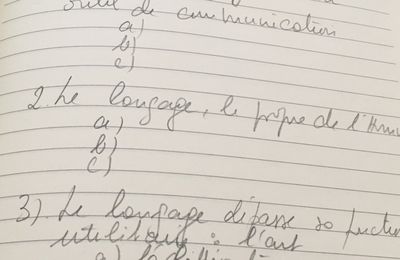 outil de communication
a)
b)
c)
2. Le langage, le propre de l'Hum
a)
b)
c)
3) Le langage dépasse sa fonctio
utilitaire : l'art
a)